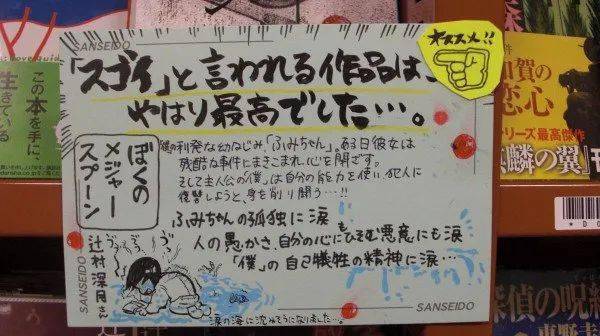 SANSEIDO
オススメ!!
「スゴイ」と言われる作品は、
やはり最高でした…。
ぼくの
メジャー
スプーン
辻村深月さん
僕の利発な幼なじみ「ふみちゃん」。ある日彼女は
残酷な事件にまきこまれ、心を閉ざす。
そして主人公の「僕」は自分の能力を使い犯人に
復讐しようと、身を削り闘う…!!
ふみちゃんの孤独に涙
人の愚かさ、自分の心にもひそむ悪意にも涙
「僕」の自己犠牲の精神に涙…
涙の海に沈みそうになりました…。
SANSEIDO
SANSEIDO
この本を手に、
生きている
加賀の
恋心
シリーズ最高傑作
『麒麟の翼』
探偵の呪縛